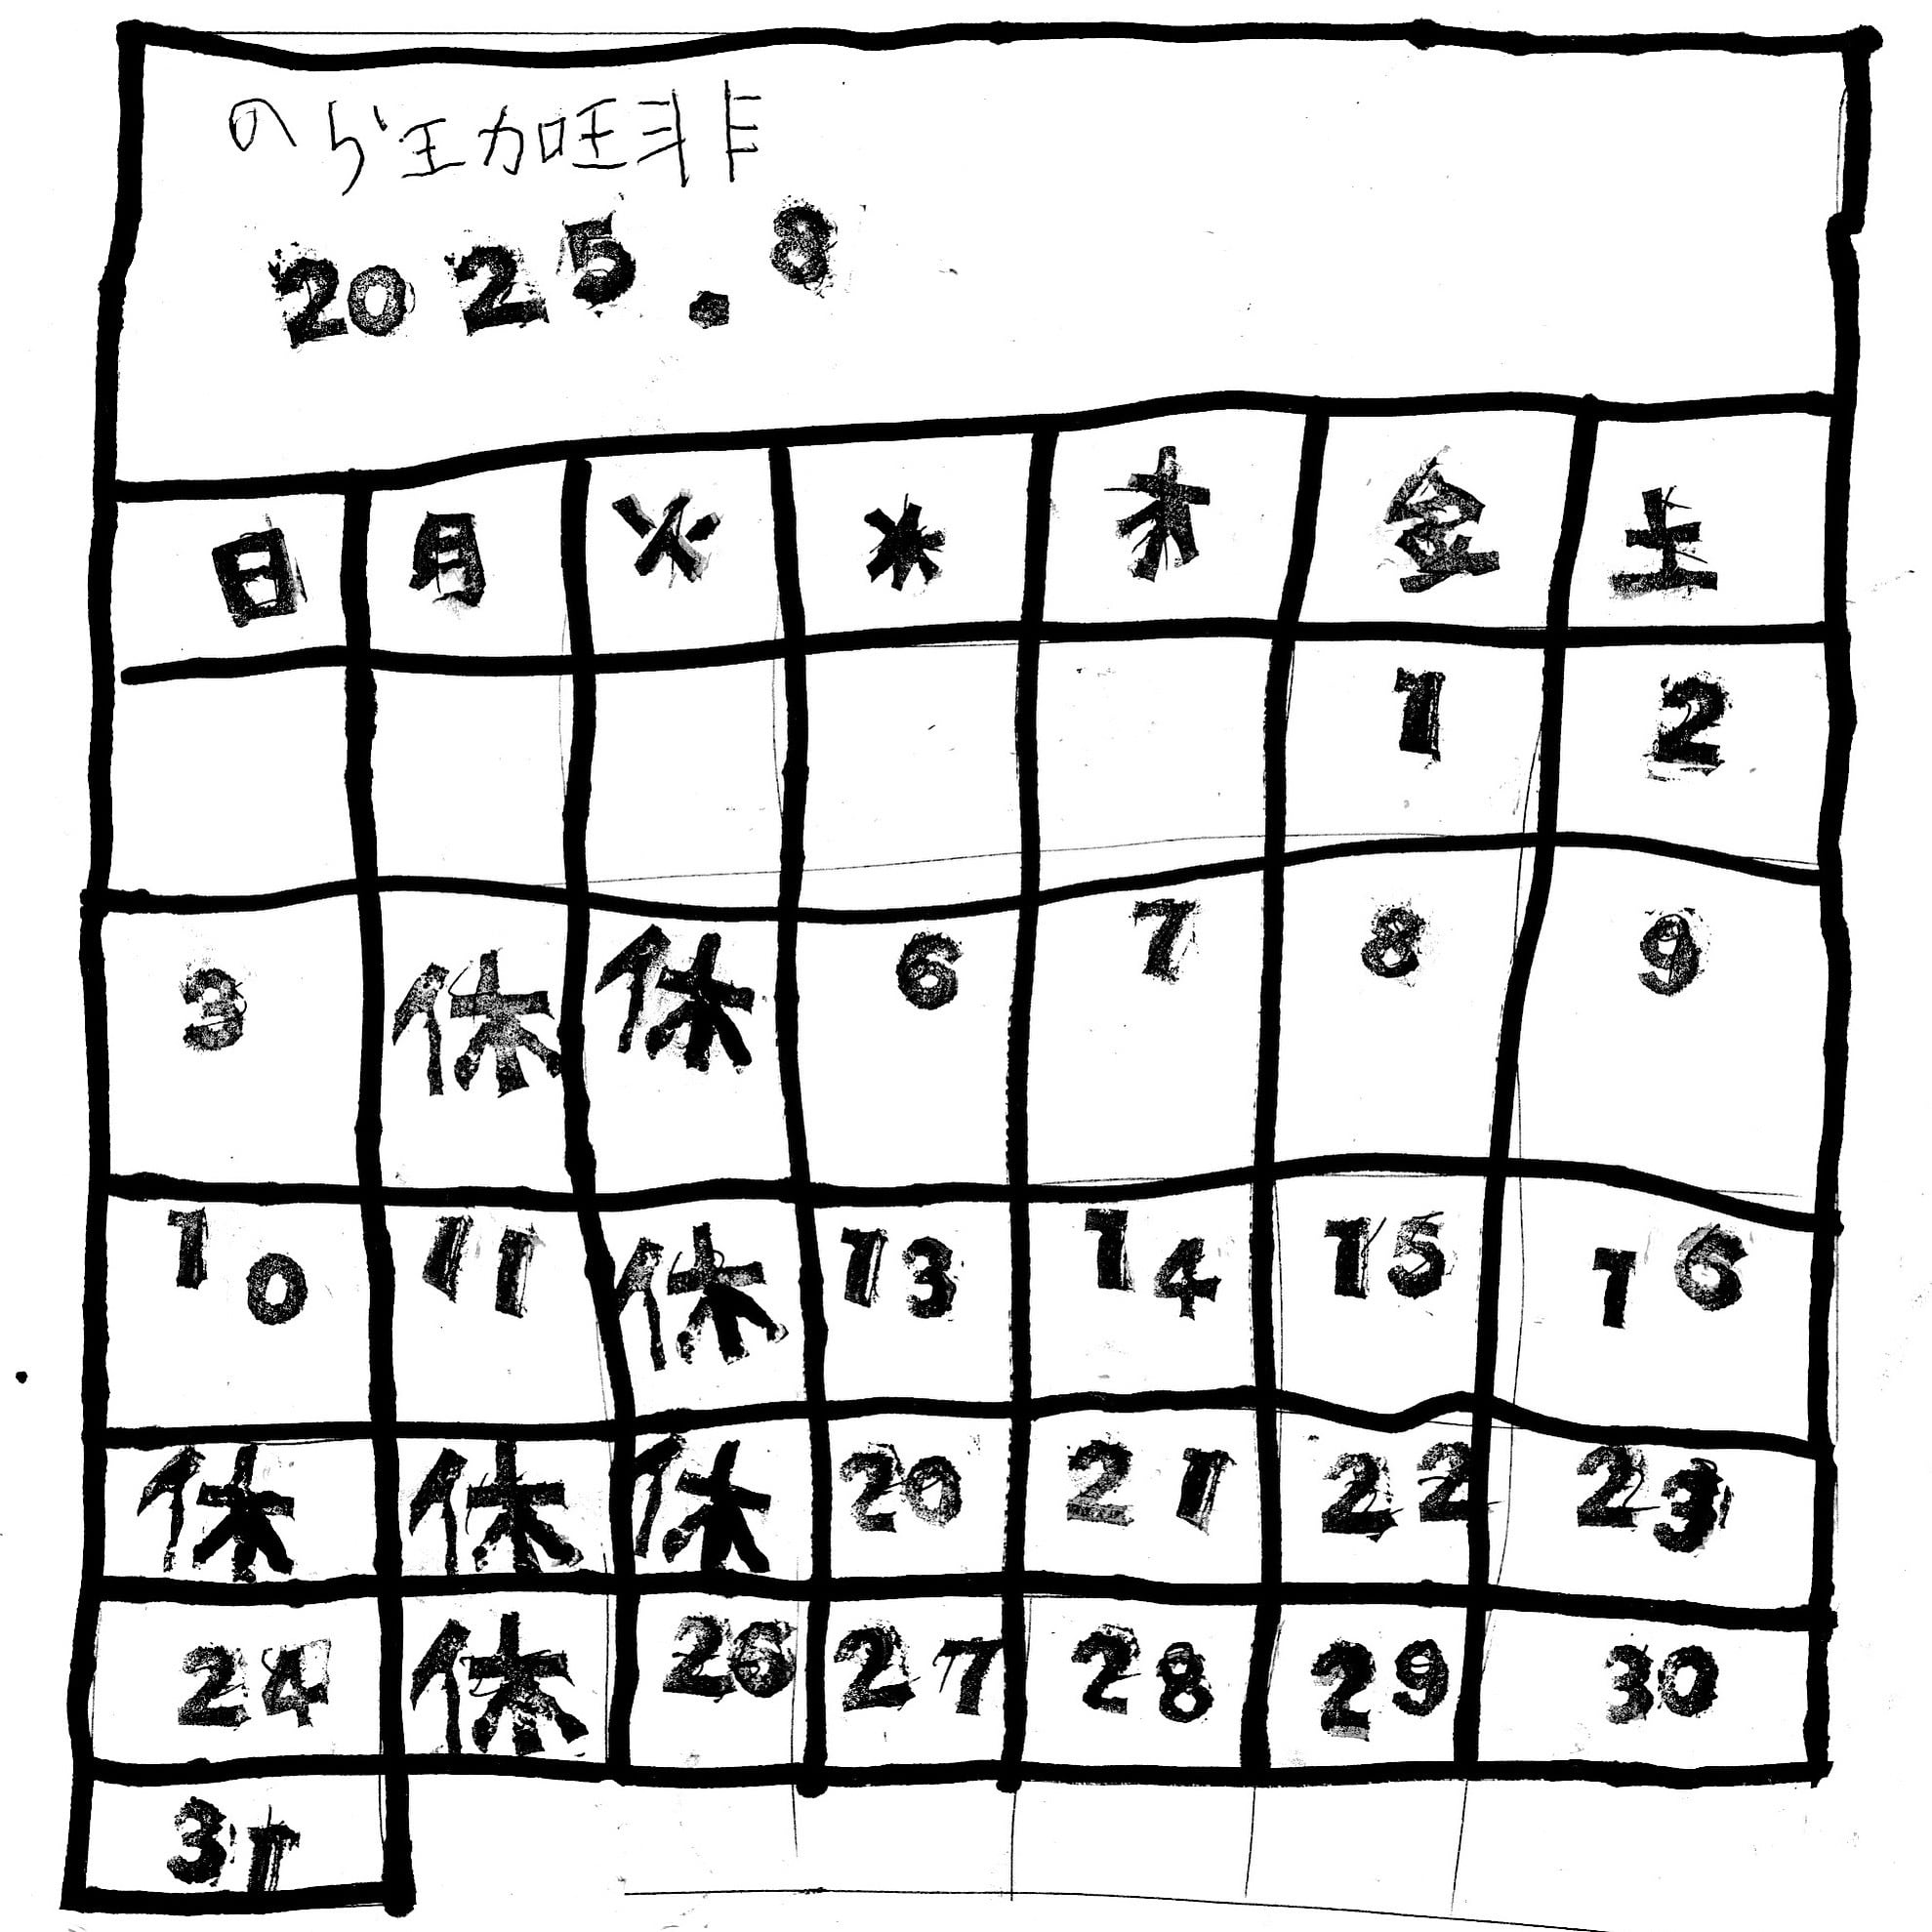 のら珈琲
2025.8
日 月 火 水 木 金 土
1 2
3 休 休 6 7 8 9
10 11 休 13 14 15 16
休 休 休 20 21 22 23
24 休 26 27 28 29 30
31